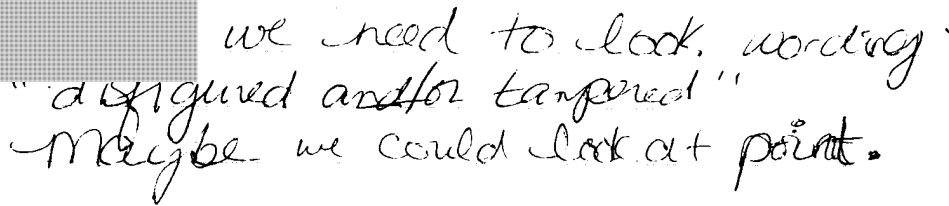 we need to look. wording.
"disfigured and/or tampered"
Maybe we could look at point.